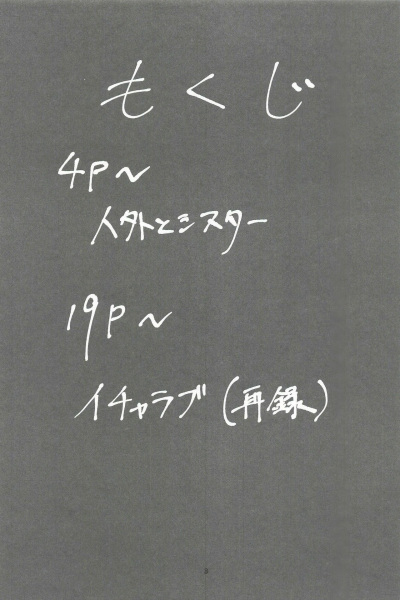 もくじ
4P〜
人外とシスター
19P〜
イチャラブ(再録)
3